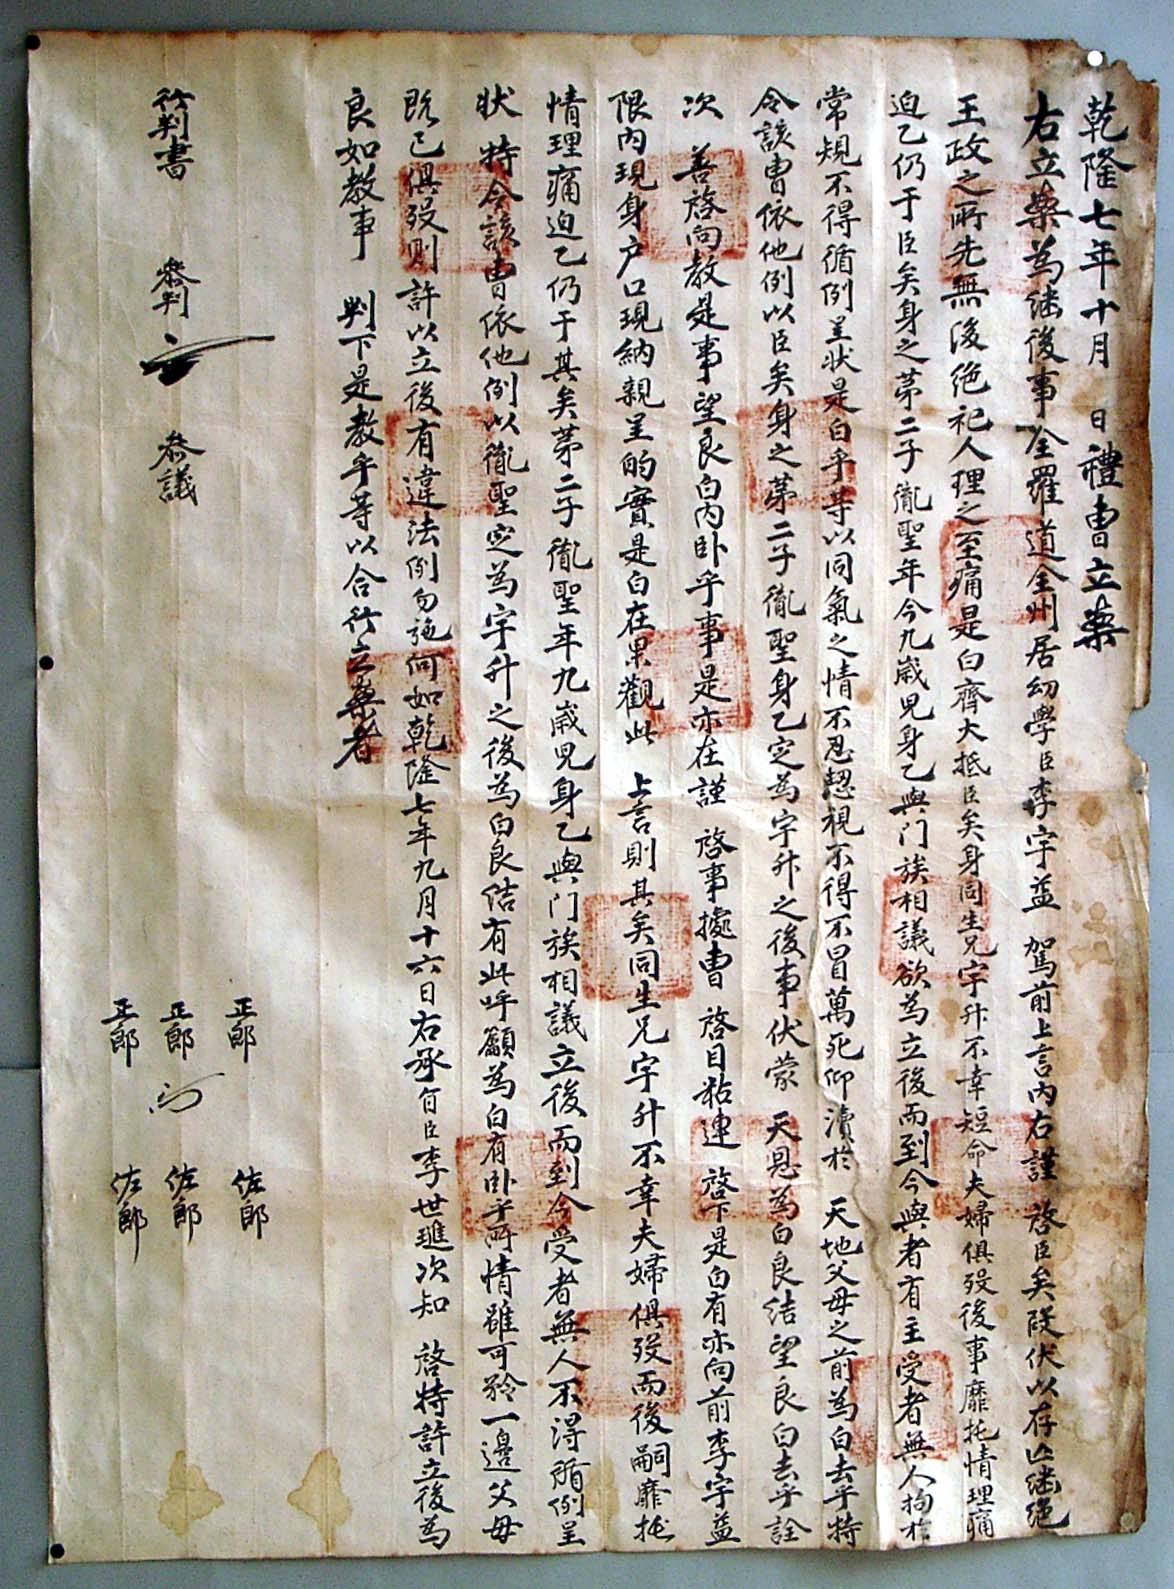 乾隆七年十月 日禮曹立案
右立案爲継後事全羅道全州居幼學臣李宇益 駕前上言內右謹 啓臣矣段伏以存亡継絶
王政之所先無後絶祀人理之至痛是白齊大抵臣矣身同生兄宇升不幸短命夫婦俱歿後事靡托情理痛
迫乙仍于臣矣身之苐二子胤聖年今九歲兒身乙與门族相議欲爲立後而到今與者有主受者無人拘於
常規不得循例呈狀是白乎等以同氣之情不忍恝視不得不冒萬死仰瀆於 天地父母之前爲白去乎特
令該曹依他例以臣矣身之苐二子胤聖身乙定爲宇升之後事伏蒙 天恩爲白良結望良白去乎詮
次 善啓向教是事望良白內卧乎事是亦在謹 啓事據曹 啓目粘連 啓下是白有亦向前李宇益
限內現身户口現納親呈的實是白在果觀此 上言則其矣同生兄宇升不幸夫婦俱歿而後嗣靡托
情理痛迫乙仍于其矣苐二子胤聖年九歲兒身乙與门族相議立後而到今受者無人不得循例呈
狀 特令該曹依他例以胤聖定爲宇升之後爲白良結有此呼籲爲白有卧乎所情雖可矜一邊父母
旣已俱歿則 許以立後有違法例勿施何如乾隆七年九月十六日右承旨臣李世璡次知 啓特許立後爲
良如教事 判下是教乎等以合行立案者
行判書 叅判 叅議
正郎 佐郎
正郎 佐郎
正郎 佐郎